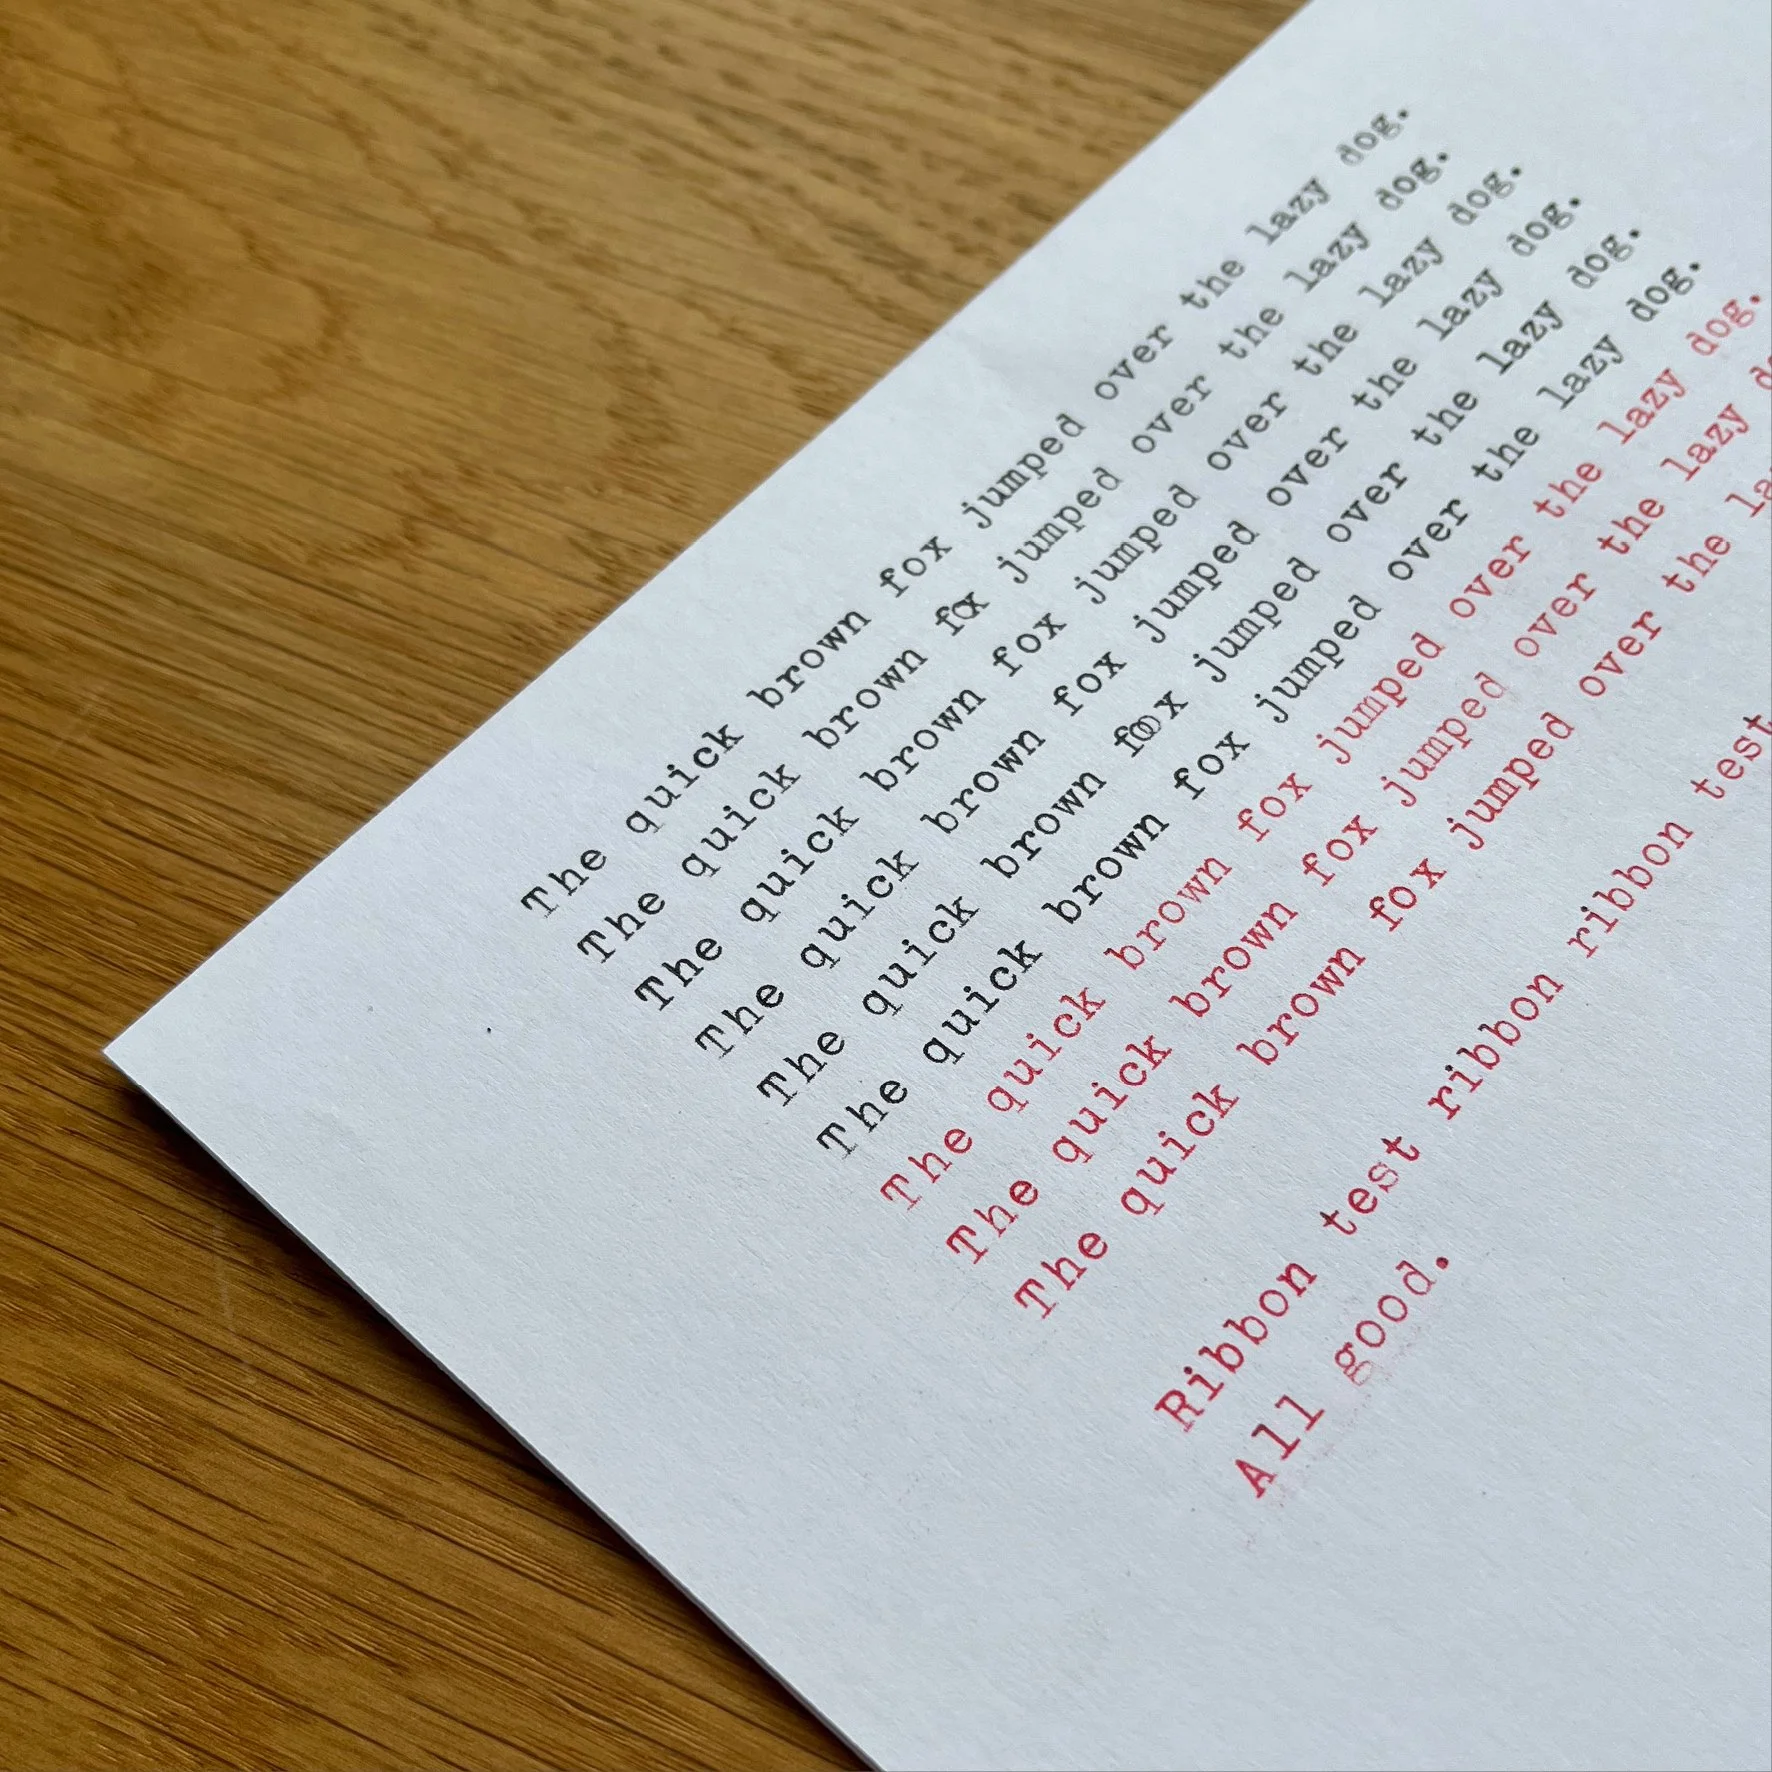 The quick brown fox jumped over the lazy dog.
The quick brown fox jumped over the lazy dog.
The quick brown fox jumped over the lazy dog.
The quick brown fox jumped over the lazy dog.
The quick brown foox jumped over the lazy dog.
The quick brown fox jumped over the lazy dog.
The quick brown fox jumped over the lazy dog.
The quick brown fox jumped over the lazy
The quick brown fox jumped over the
Ribbon test ribbon ribbon test
All good.